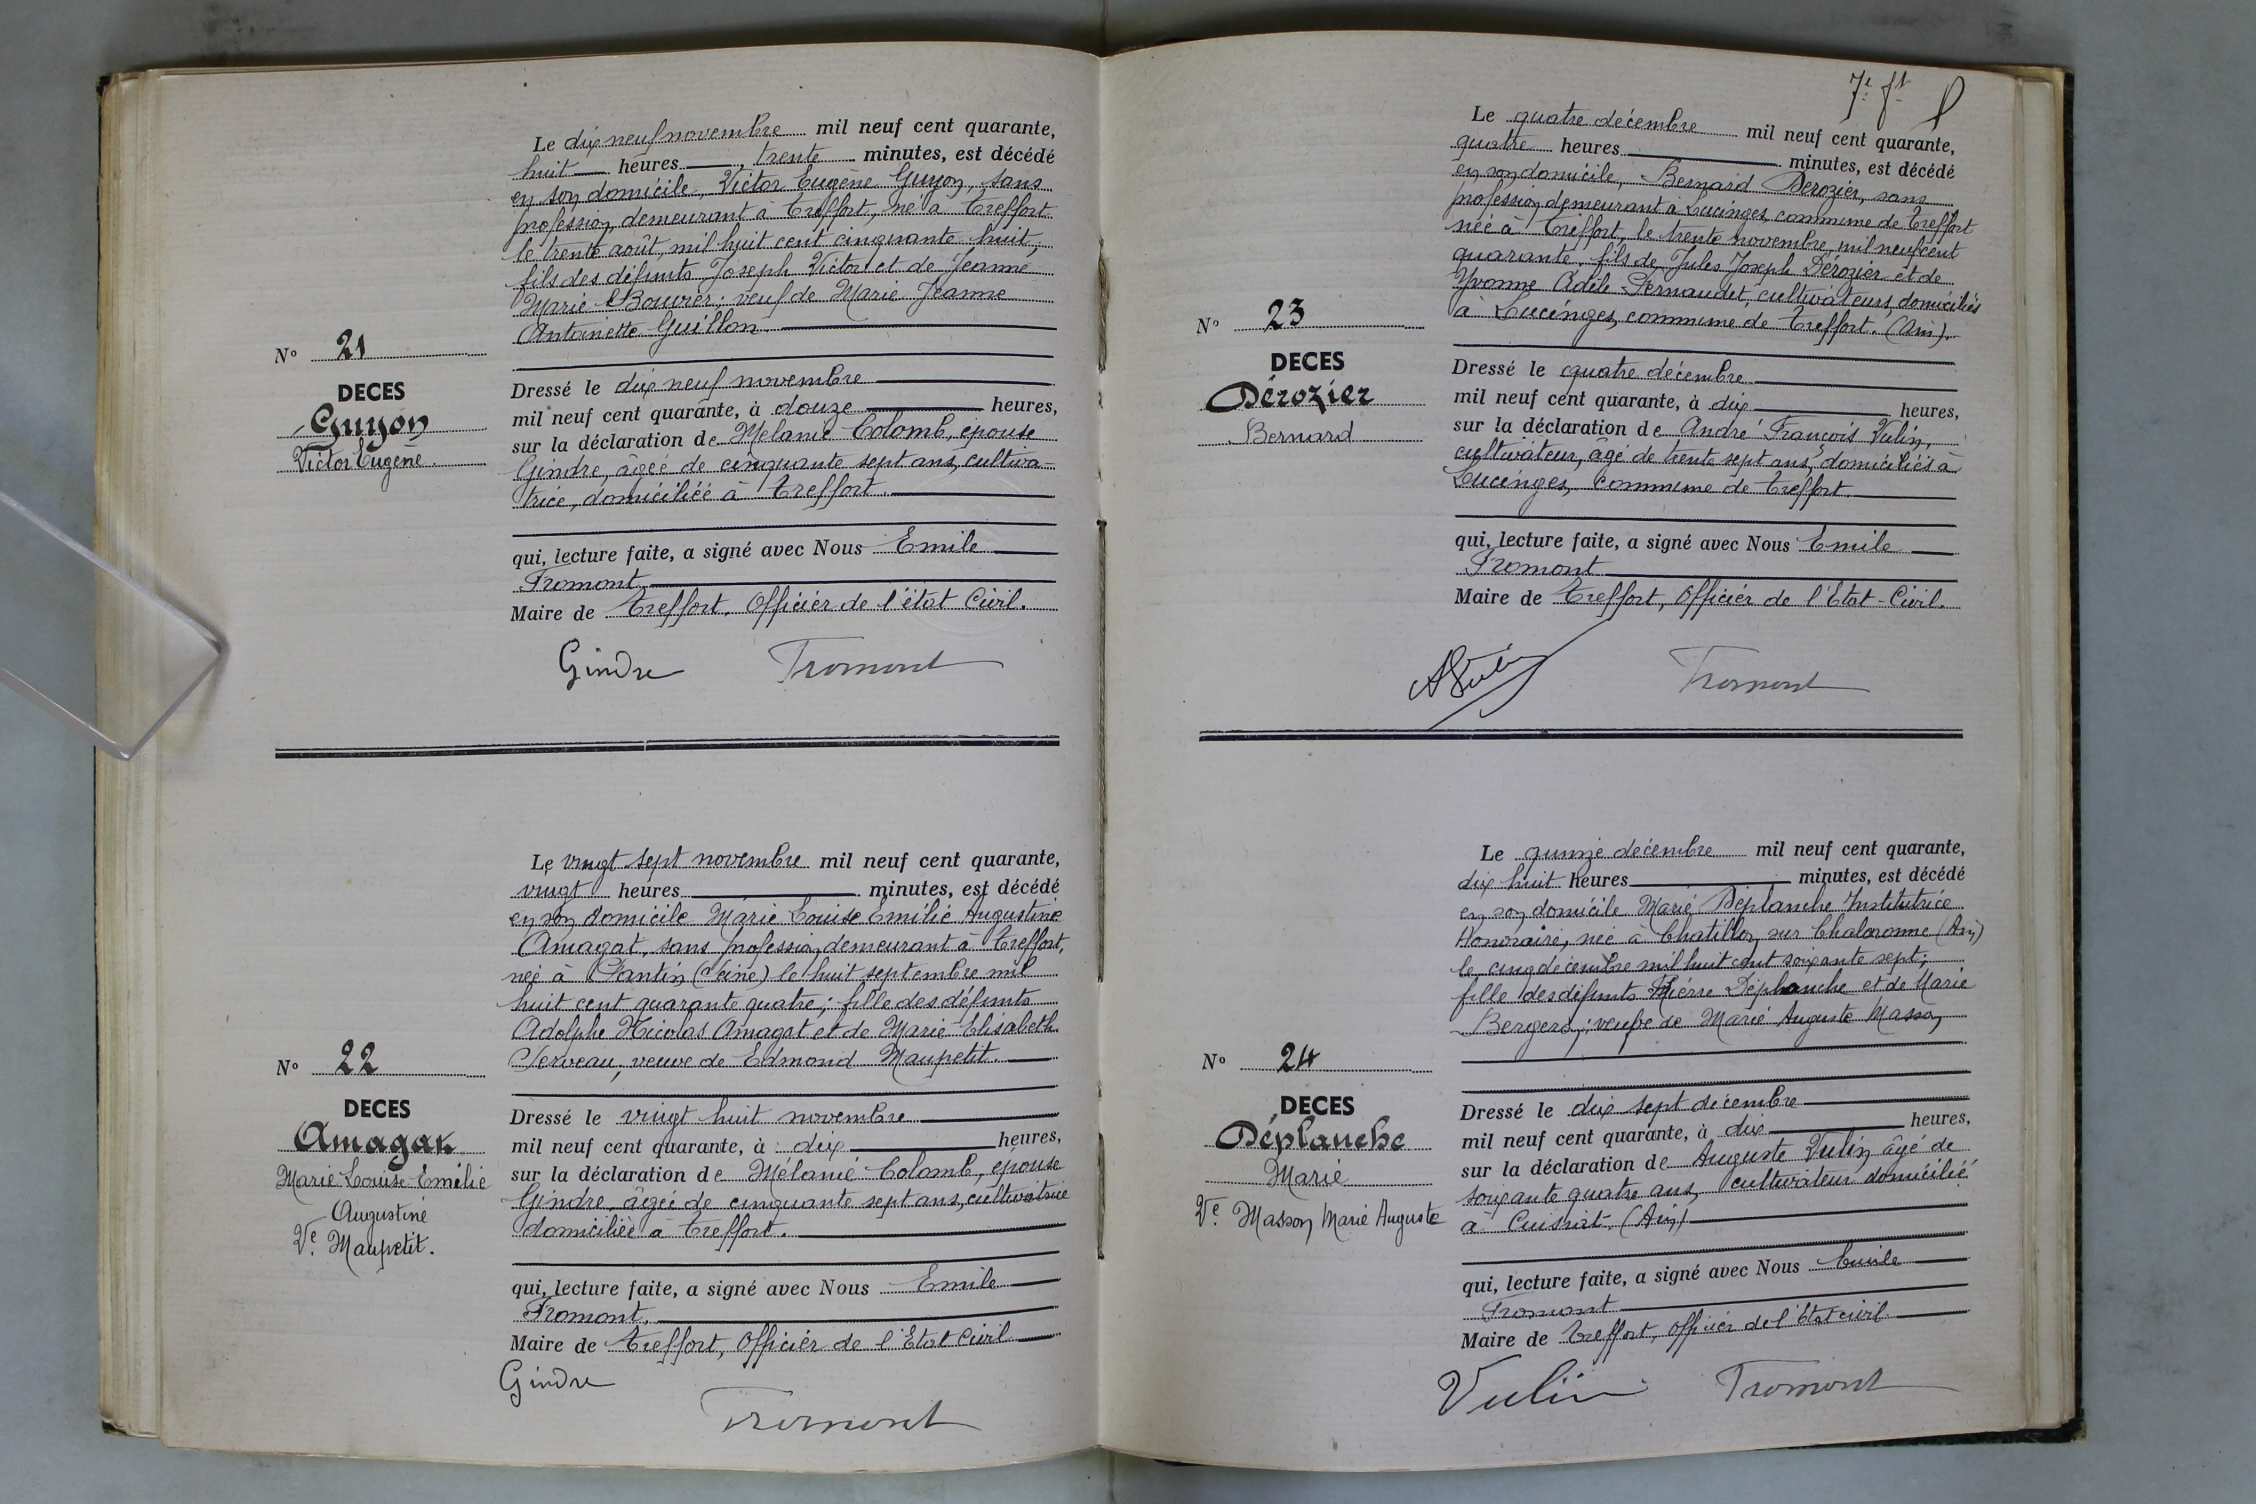 Le dix neuf novembre mil neuf cent quarante,
huit heures, trente minutes, est décédé
en son domicile, Victor Eugène Guyon, sans
profession, demeurant à Treffort, né à Treffort
le trente août, mil huit cent cinquante huit;
fils des défunts Joseph Victor et de Jeanne
Marie Bouvier; veuf de Marie Jeanne
Antoinette Guillon.
N° 21
DECES
Guyon
Victor Eugène
Dressé le dix neuf novembre
mil neuf cent quarante, à douze heures,
sur la déclaration de Mélanie Colomb, épouse
Gindre, âgée de cinquante sept ans, cultiva-
trice, domiciliée à Treffort.
qui, lecture faite, a signé avec Nous Emile
Fromont
Maire de Treffort, Officier de l'état Civil.
Gindre Fromont
Le vingt sept novembre mil neuf cent quarante,
vingt heures minutes, est décédé
en son domicile Marie Louise Emélie Augustine
Amagat, sans profession demeurant à Treffort,
née à Pantin (Seine) le huit septembre mil
huit cent quarante quatre; fille des défunts
Adolphe Nicolas Amagat et de Marie Elisabeth
Serveau, veuve de Edmond Maupetit.
N° 22
DECES
Amagat
Marie Louise Emélie
Augustine
Ve. Maupetit.
Dressé le vingt huit novembre
mil neuf cent quarante, à dix heures,
sur la déclaration de Mélanie Colomb, épouse
Gindre, âgée de cinquante sept ans, cultivatrice
domiciliée à Treffort.
qui, lecture faite, a signé avec Nous Emile
Fromont.
Maire de Treffort, Officier de l'Etat Civil
Gindre
Fromont
7e ft
Le quatre décembre mil neuf cent quarante,
quatre heures minutes, est décédé
en son domicile, Bernard Derozier, sans
profession, demeurant à Lucinges, commune de Treffort
née à Treffort, le trente novembre, mil neuf cent
quarante, fils de Jules Joseph Dérozier et de
Yvonne Adèle Pernaudet, cultivateurs, domiciliés
à Lucinges, commune de Treffort. (Ain).
N° 23
DECES
Dérozier
Bernard
Dressé le quatre décembre
mil neuf cent quarante, à dix heures,
sur la déclaration de André François Vulin,
cultivateur, âgé de trente sept ans, domiciliés à
Lucinges, commune de Treffort.
qui, lecture faite, a signé avec Nous Emile
Fromont
Maire de Treffort, Officier de l'Etat-Civil.
AVulin Fromont
Le quinze décembre mil neuf cent quarante,
dix huit heures minutes, est décédé
en son domicile Marie Déplanche Institutrice
Honoraire, née à Chatillon sur Chalaronne (Ain)
le cinq décembre mil huit cent soixante sept;
fille des défunts Pierre Déplanche et de Marie
Bergero; veuve de Marie Auguste Masson
N° 24
DECES
Déplanche
Marie
Ve. Masson Marie Auguste
Dressé le dix sept décembre
mil neuf cent quarante, à dix heures,
sur la déclaration de Auguste Vulin âgé de
soixante quatre ans, cultivateur domicilié
à Cuisiat. (Ain)
qui, lecture faite, a signé avec Nous Emile
Fromont
Maire de Treffort, officier de l'Etat civil
Vulin Fromont